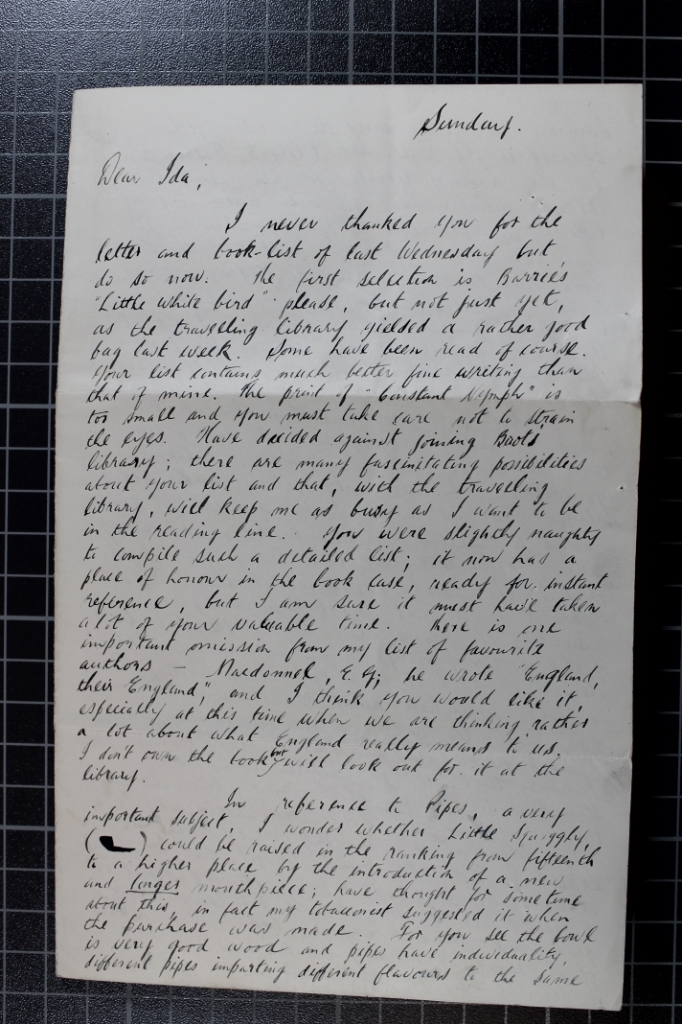 Sunday.
Dear Ida,
I never thanked you for the
letter and book-list of last Wednesday but
do so now. The first selection is, Barrie's
"Little white bird" please, but not just yet,
as the travelling library yielded a rather good
bag last week. Some have been read of course.
Your list contains much better fine writing than
that of mine. The print of "Constant Nymph" is
too small and you must take care not to strain
the eyes. Have decided against joining Boots
library; there are many fascinating possibilities
about your list and that, with the travelling
library, will keep me as busy as I want to be
in the reading line. You were slightly naughty
to compile such a detailed list; it now has a
place of honour in the book case, ready for instant
reference, but I am sure it must have taken
a lot of your valuable time. There is one
important omission from my list of favourite
authors — Macdonnel, E. G; he wrote "England,
their England," and I think you would like it,
especially at this time when we are thinking rather
a lot about what England really means to us.
I don't own the book, but will look out for it at the
library.
In reference to Pipes, a very
important subject, I wonder whether Little Squiggly,
( ) could be raised in the ranking from fifteenth
to a higher place by the introduction of a new
and longer mouthpiece; have thought for sometime
about this, in fact my tobacconist suggested it when
the purchase was made. For you see the bowl
is very good wood and pipes have individuality,
different pipes imparting different flavours to the same